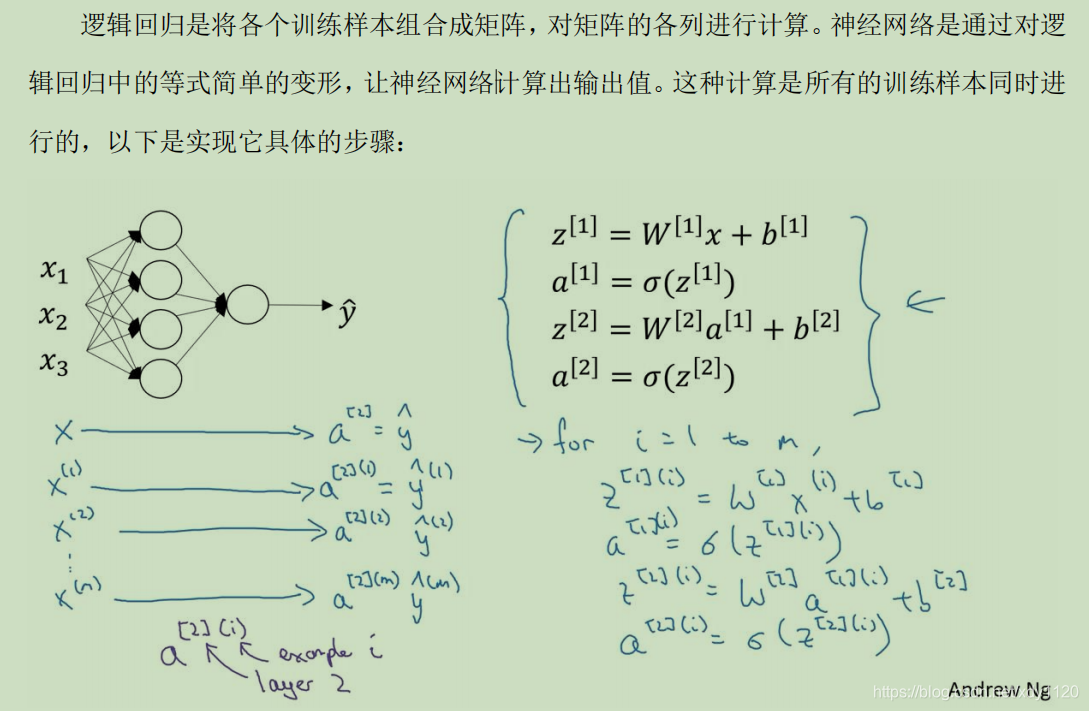 逻辑回归是将各个训练样本组合成矩阵，对矩阵的各列进行计算。神经网络是通过对逻
辑回归中的等式简单的变形，让神经网络计算出输出值。这种计算是所有的训练样本同时进
行的，以下是实现它具体的步骤：
x₁
x₂
x₃
ŷ
z^[1] = W^[1]x + b^[1]
a^[1] = σ(z^[1])
z^[2] = W^[2]a^[1] + b^[2]
a^[2] = σ(z^[2])
x → a^[2] = ŷ
x^(1) → a^[2](1) = ŷ^(1)
x^(2) → a^[2](2) ŷ^(2)
⋮
x^(m) → a^[2](m) ŷ^(m)
a^[2](i)
example i
layer 2
→ for i = 1 to m,
z^[1](i) = W^[1] x^(i) + b^[1]
a^[1](i) = σ(z^[1](i))
z^[2](i) = W^[2] a^[1](i) + b^[2]
a^[2](i) = σ(z^[2](i))
Andrew Ng